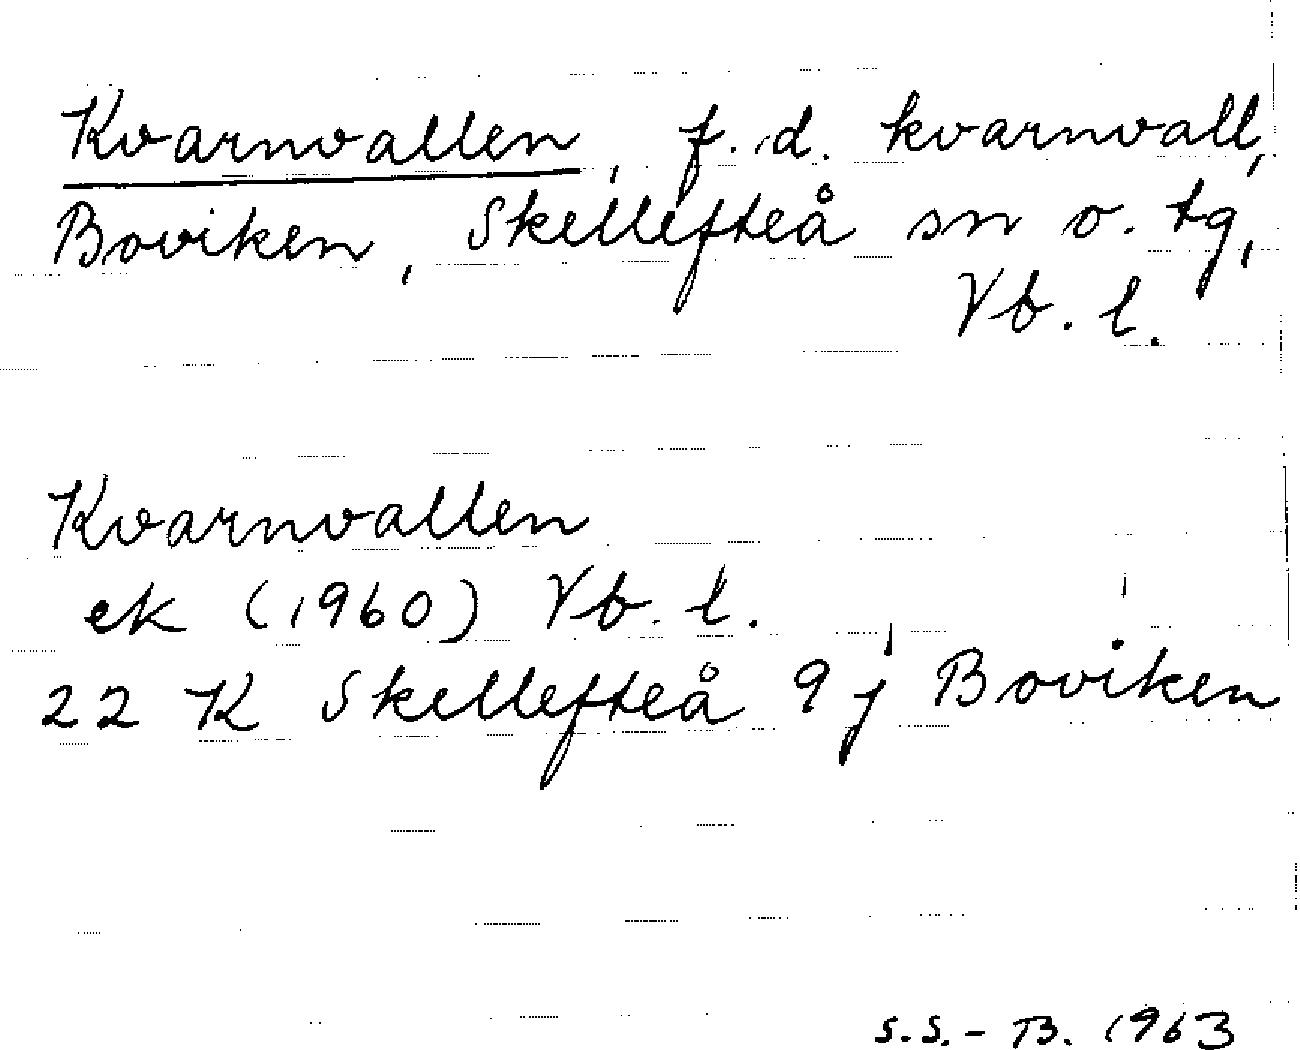 Kvarnvallen, f.d. kvarnvall,
Boviken, Skellefteå sn o. tg,
Vb. l.
Kvarnvallen
ek (1960) Vb. l.
22 K Skellefteå 9 j Boviken
S.S.-B. 1963